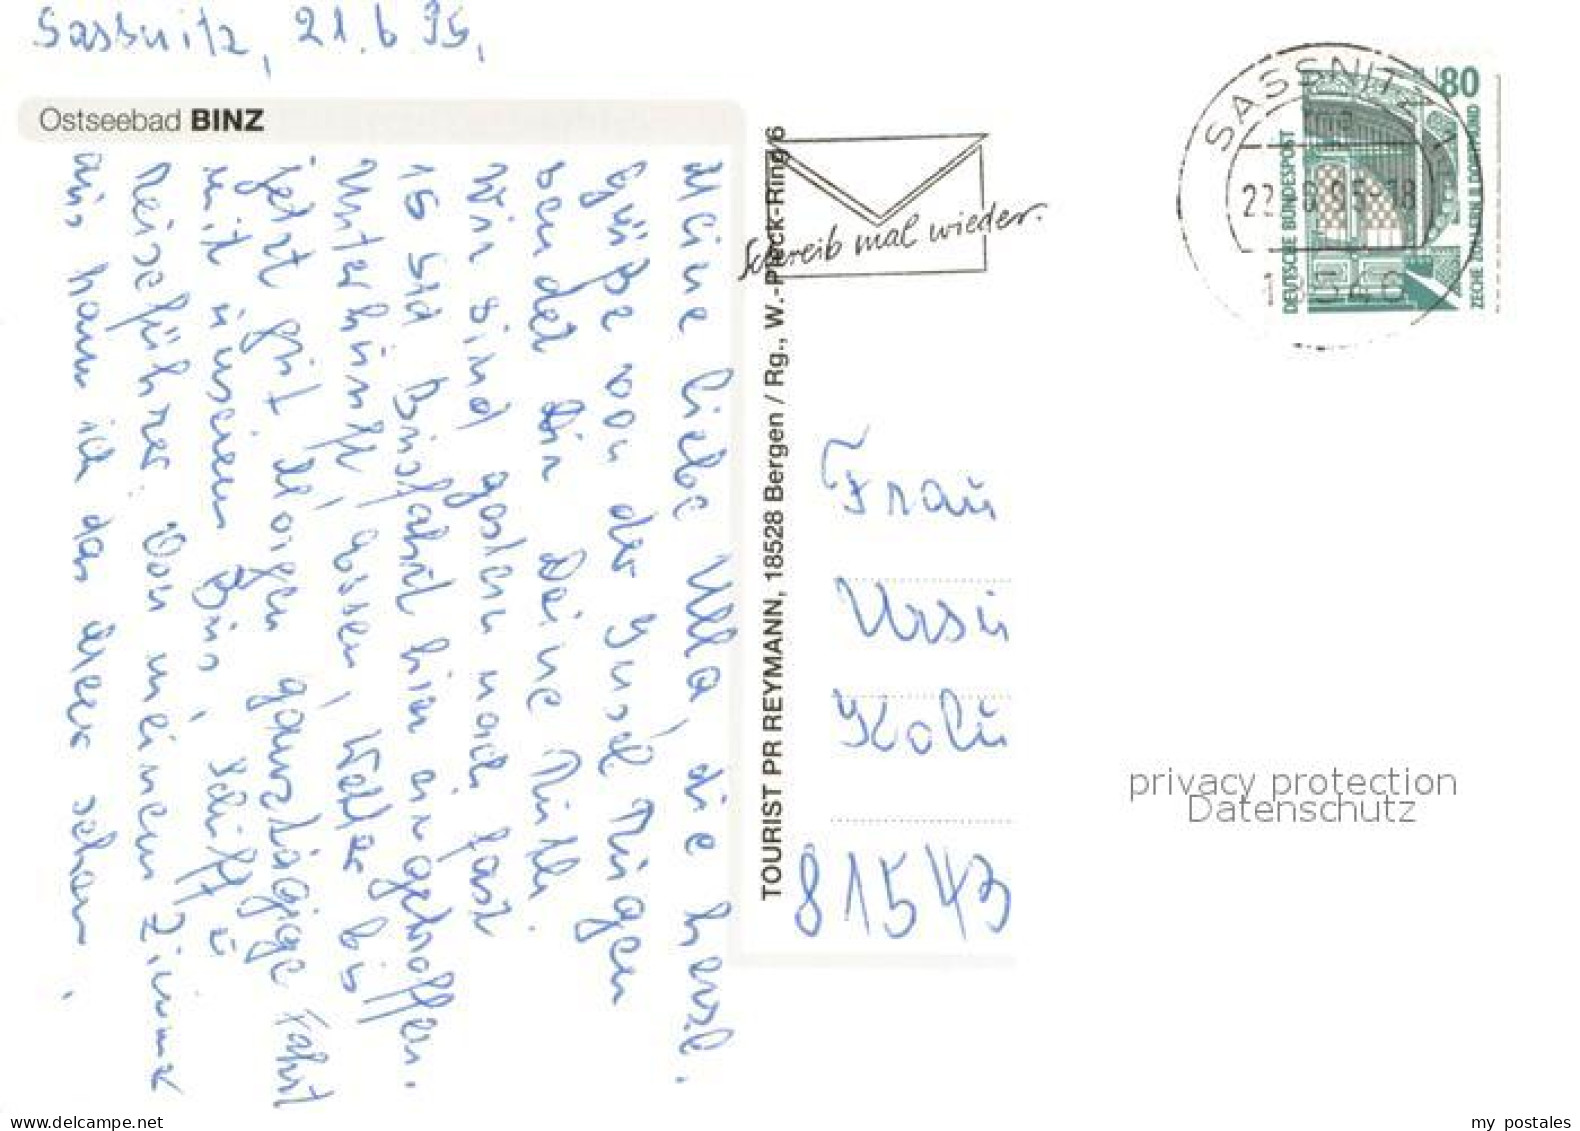 Sassnitz, 21.6.95,
Ostseebad BINZ
Meine liebe Ulla, die herzl.
Grüße von der Insel Rügen
sendet Dir Deine Ruth.
Wir sind gestern nach fast
15 Std Busfahrt hier eingetroffen.
Unterkunft, Essen, Wetter bis
jetzt gut. Morgen ganztägige Fahrt
mit unserem Bus, Schiff u
Reiseführer. Von meinem Zimmer
aus kann ich das Meer sehen.
TOURIST PR REYMANN, 18528 Bergen / Rg., W.-Pieck-Ring 6
Schreib mal wieder.
SASSNITZ 1
22.6.95-18
18546
80
DEUTSCHE BUNDESPOST
ZECHE ZOLLERN II DORTMUND
Frau
Ursu
Kolu
81543
privacy protection
Datenschutz
www.delcampe.net
my postales